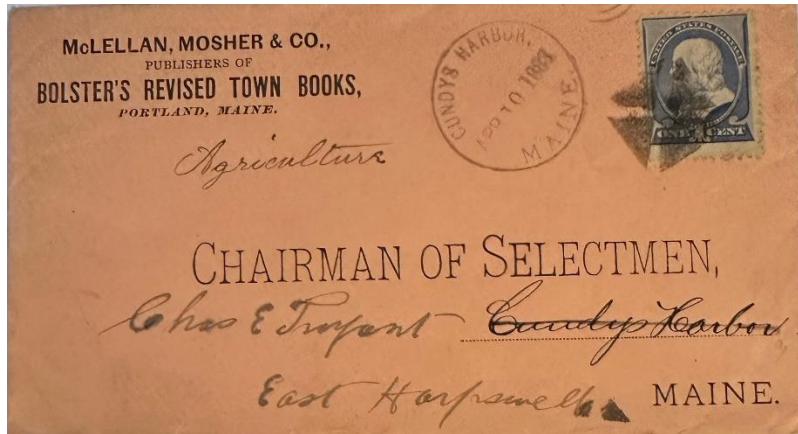 McLELLAN, MOSHER & CO.,
PUBLISHERS OF
BOLSTER'S REVISED TOWN BOOKS,
PORTLAND, MAINE.
CUNDYS HARBOR,
APR 10 1887
MAINE.
UNITED STATES POSTAGE
ONE CENT
Agriculture
CHAIRMAN OF SELECTMEN,
Chas E Trufant Cundys Harbor
East Harpswell
MAINE.